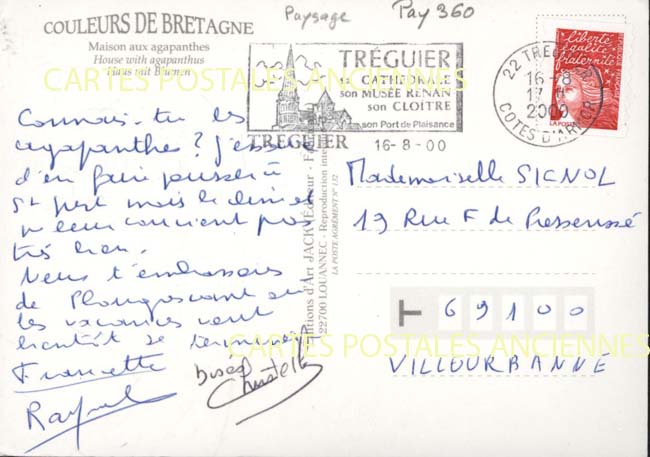 Paysage Pay 360
COULEURS DE BRETAGNE
Maison aux agapanthes
House with agapanthus
Haus mit Blumen
CARTES POSTALES ANCIENNES
TRÉGUIER
sa CATHÉDRALE
son MUSÉE RENAN
son CLOÎTRE
son Port de Plaisance
TREGUIER 16-8-00
22 TREGUIER
16-8
17 H
2000
COTES D'ARMOR
liberté
égalité
fraternité
LA POSTE
Connais-tu les
agapanthes ? J'essaie
d'en faire pousser à
St pert mais le climat
ne leur convient pas
très bien.
Nous t'embrassons
de Plougrescant où
les vacances vont
bientôt se terminer
Francette
Raymond
bises
Christelle
Editions d'Art JACK
22700 LOUANNEC - Reproduction inter
LA POSTE AGRÉMENT N° 132
Mademoiselle SIGNOL
19 Rue F de Pressensé
T 69100
VILLEURBANNE
CARTES POSTALES ANCIENNES